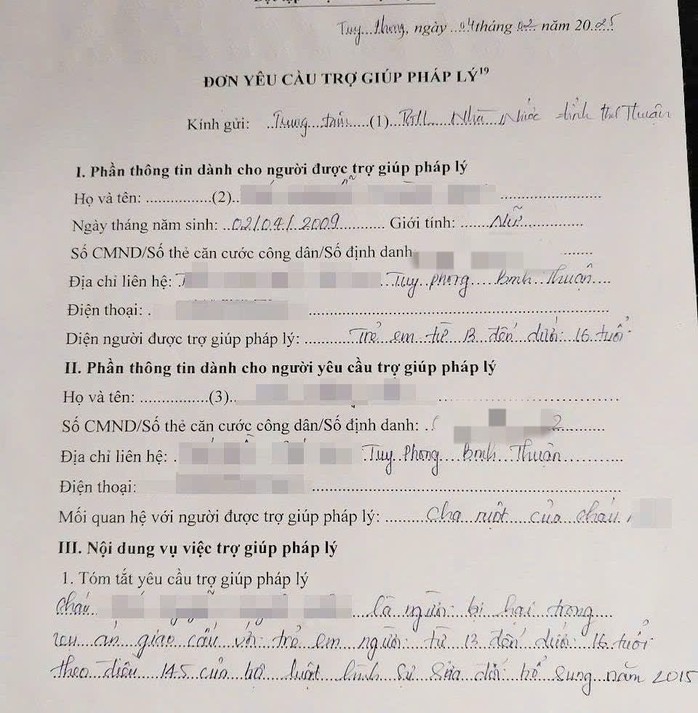 Tuy Phong, ngày 04 tháng 02 năm 2025
ĐƠN YÊU CẦU TRỢ GIÚP PHÁP LÝ¹⁹
Kính gửi: Trung tâm (1) TGPL Nhà Nước tỉnh Bình Thuận
I. Phần thông tin dành cho người được trợ giúp pháp lý
Họ và tên: ................(2)..
Ngày tháng năm sinh: 02/04/2009 Giới tính: Nữ
Số CMND/Số thẻ căn cước công dân/Số định danh
Địa chỉ liên hệ: Tuy Phong Bình Thuận
Điện thoại:
Diện người được trợ giúp pháp lý: Trẻ em từ 13 đến dưới 16 tuổi
II. Phần thông tin dành cho người yêu cầu trợ giúp pháp lý
Họ và tên: ................(3)..
Số CMND/Số thẻ căn cước công dân/Số định danh: 2
Địa chỉ liên hệ: Tuy Phong Bình Thuận
Điện thoại:
Mối quan hệ với người được trợ giúp pháp lý: Cha ruột của cháu
III. Nội dung vụ việc trợ giúp pháp lý
1. Tóm tắt yêu cầu trợ giúp pháp lý
Cháu là người bị hại trong
vụ án giao cấu với trẻ em người từ 13 đến dưới 16 tuổi
theo điều 145 của bộ luật hình sự sửa đổi bổ sung năm 2015